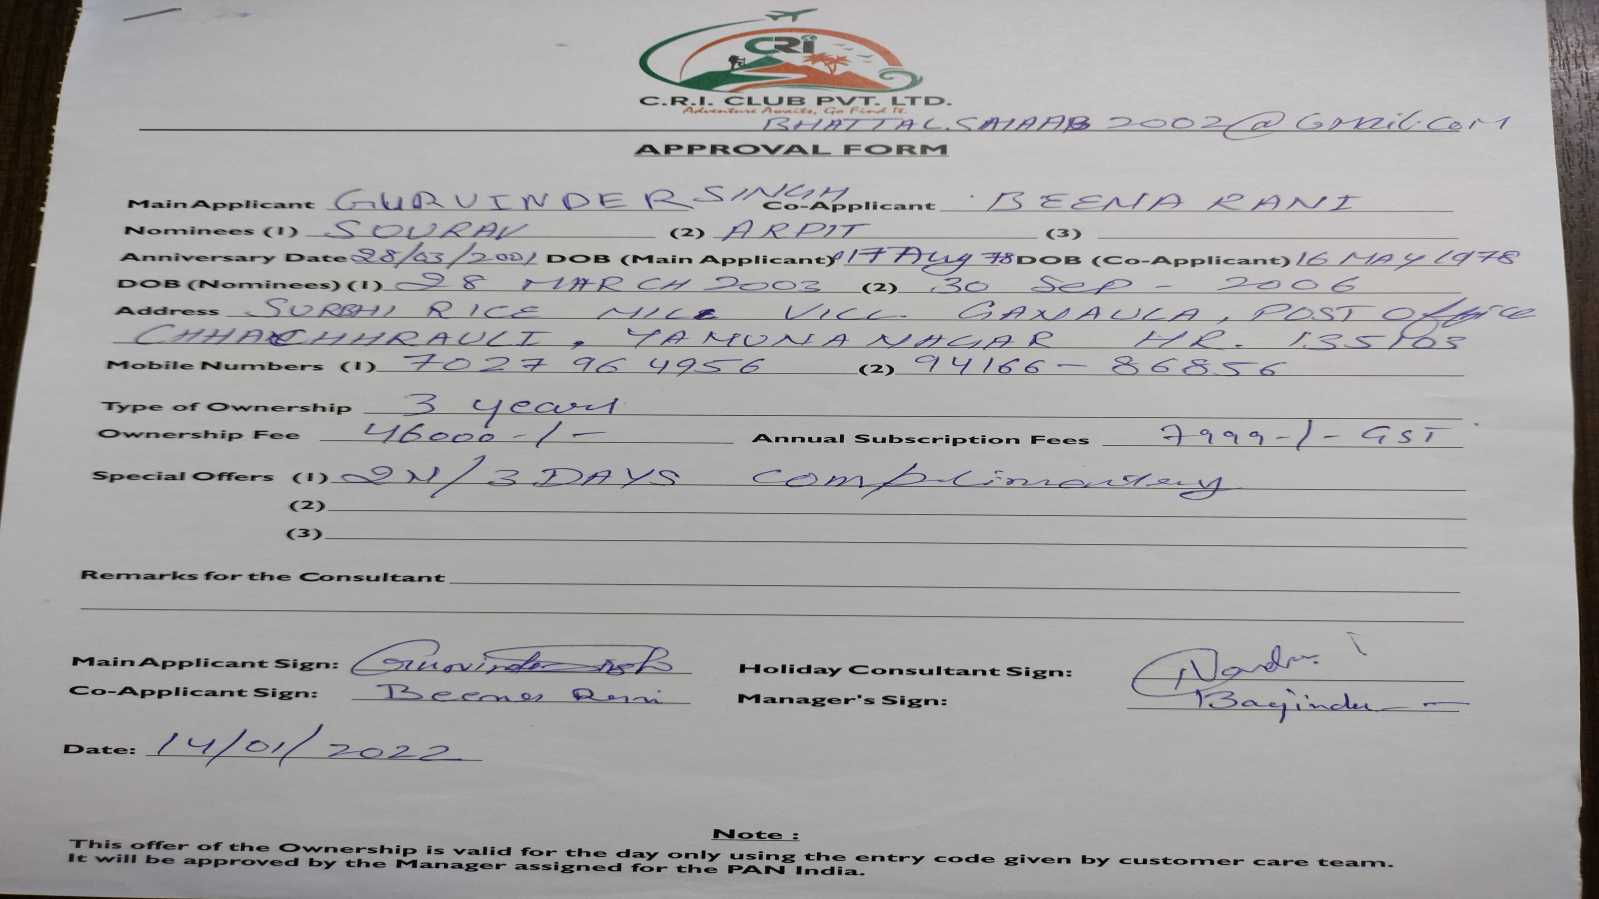 CRi
C.R.I. CLUB PVT. LTD.
Adventure Awaits, Go Find It.
BHATTAL.SAHAAB2002@Gmail.com
APPROVAL FORM
Main Applicant GURVINDER SINGH Co-Applicant BEEMA RANI
Nominees (1) SOURAV (2) ARPIT (3)
Anniversary Date 28/03/2001 DOB (Main Applicant) 17 Aug 78 DOB (Co-Applicant) 16 MAY 1978
DOB (Nominees) (1) 28 MARCH 2003 (2) 30 Sep - 2006
Address SURBHI RICE MILL VILL. GANAULA, POST Office
CHHACHHRAULI, YAMUNANAGAR HR. 135103
Mobile Numbers (1) 7027 96 4956 (2) 94166-86856
Type of Ownership 3 years
Ownership Fee 46000-/- Annual Subscription Fees 7999-/- GST
Special Offers (1) 2N/3DAYS complimantery
(2)
(3)
Remarks for the Consultant
Main Applicant Sign: Gurvinder Singh Holiday Consultant Sign:
Co-Applicant Sign: Beema Rani Manager's Sign:
Date: 14/01/2022
Note :
This offer of the Ownership is valid for the day only using the entry code given by customer care team.
It will be approved by the Manager assigned for the PAN India.